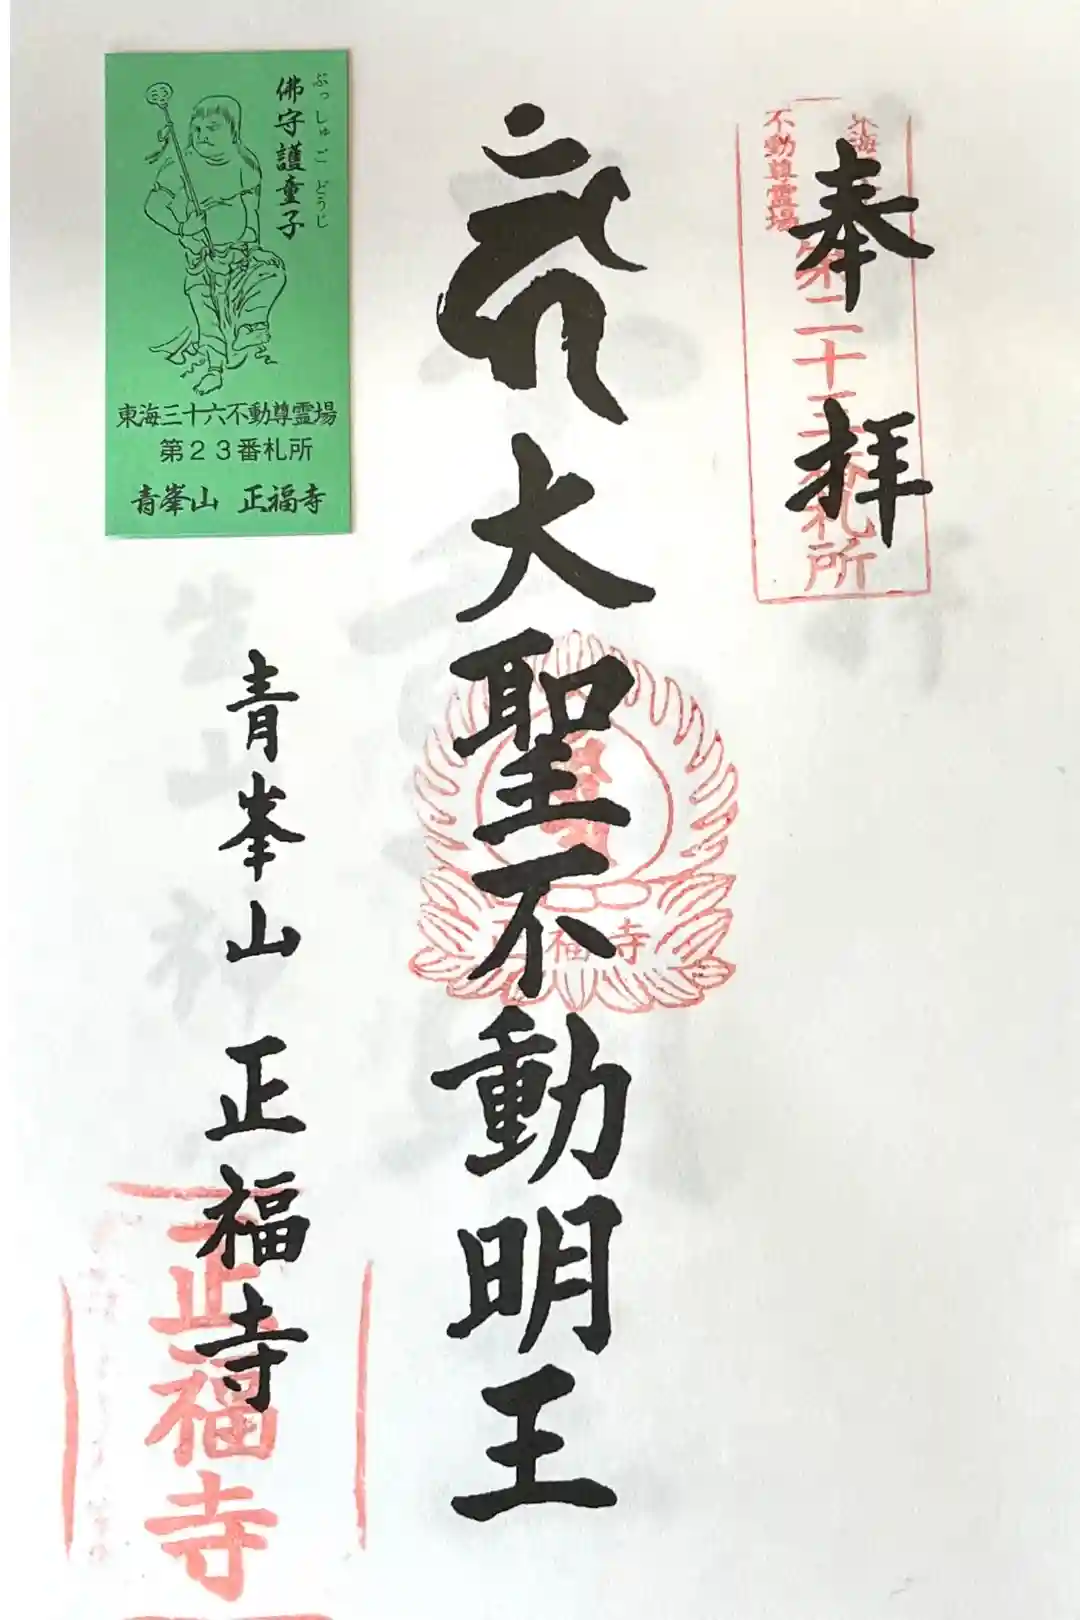 奉拝
不動尊霊場
第二十三番札所
大聖不動明王
正福寺
青峯山 正福寺
正福寺
佛守護童子
ぶっしゅご どうじ
東海三十六不動尊霊場
第23番札所
青峯山 正福寺